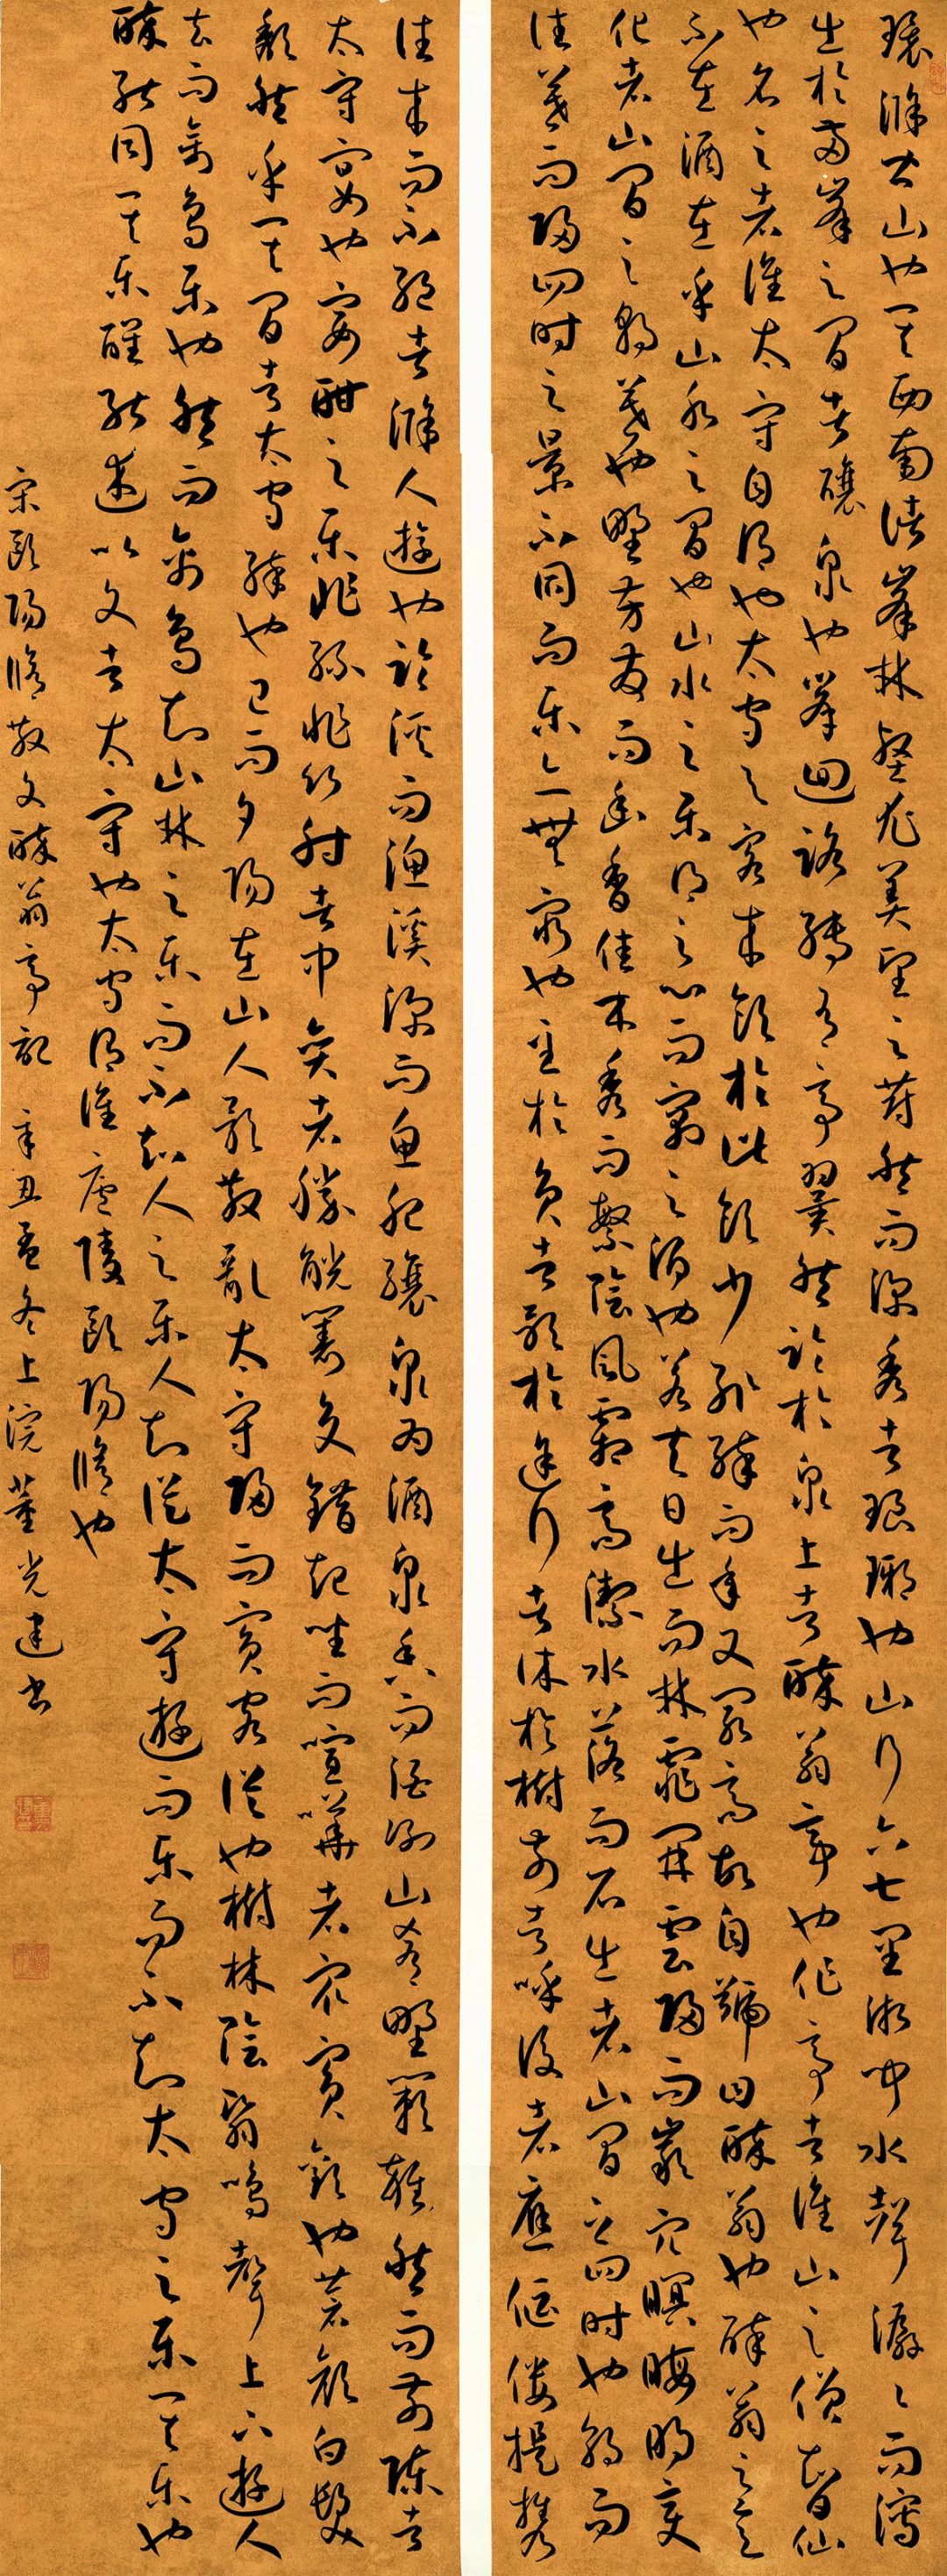 環滁皆山也其西南諸峯林壑尤美望之蔚然而深秀者琅琊也山行六七里漸聞水聲潺々而瀉
出於兩峯之間者釀泉也峯迴路轉有亭翼然臨於泉上者醉翁亭也作亭者誰山之僧智仙
也名之者誰太守自謂也太守與客來飲於此飲少輒醉而年又最高故自號曰醉翁也醉翁之意
不在酒在乎山水之間也山水之樂得之心而寓之酒也若夫日出而林霏開雲歸而巖穴暝晦明變
化者山間之朝暮也野芳發而幽香佳木秀而繁陰風霜高潔水落而石出者山間之四時也朝而
往暮而歸四時之景不同而樂亦無窮也至於負者歌於途行者休於樹前者呼後者應傴僂提攜
往來而不絕者滁人遊也臨溪而漁溪深而魚肥釀泉為酒泉香而酒洌山肴野蔌雜然而前陳者
太守宴也宴酣之樂非絲非竹射者中奕者勝觥籌交錯起坐而喧嘩者衆賓歡也蒼顏白髮
頹然乎其間者太守醉也已而夕陽在山人影散亂太守歸而賓客從也樹林陰翳鳴聲上下遊人
去而禽鳥樂也然而禽鳥知山林之樂而不知人之樂人知從太守遊而樂而不知太守之樂其樂也
醉能同其樂醒能述以文者太守也太守謂誰廬陵歐陽脩也
宋歐陽脩散文醉翁亭記 辛丑孟冬上浣董光建書